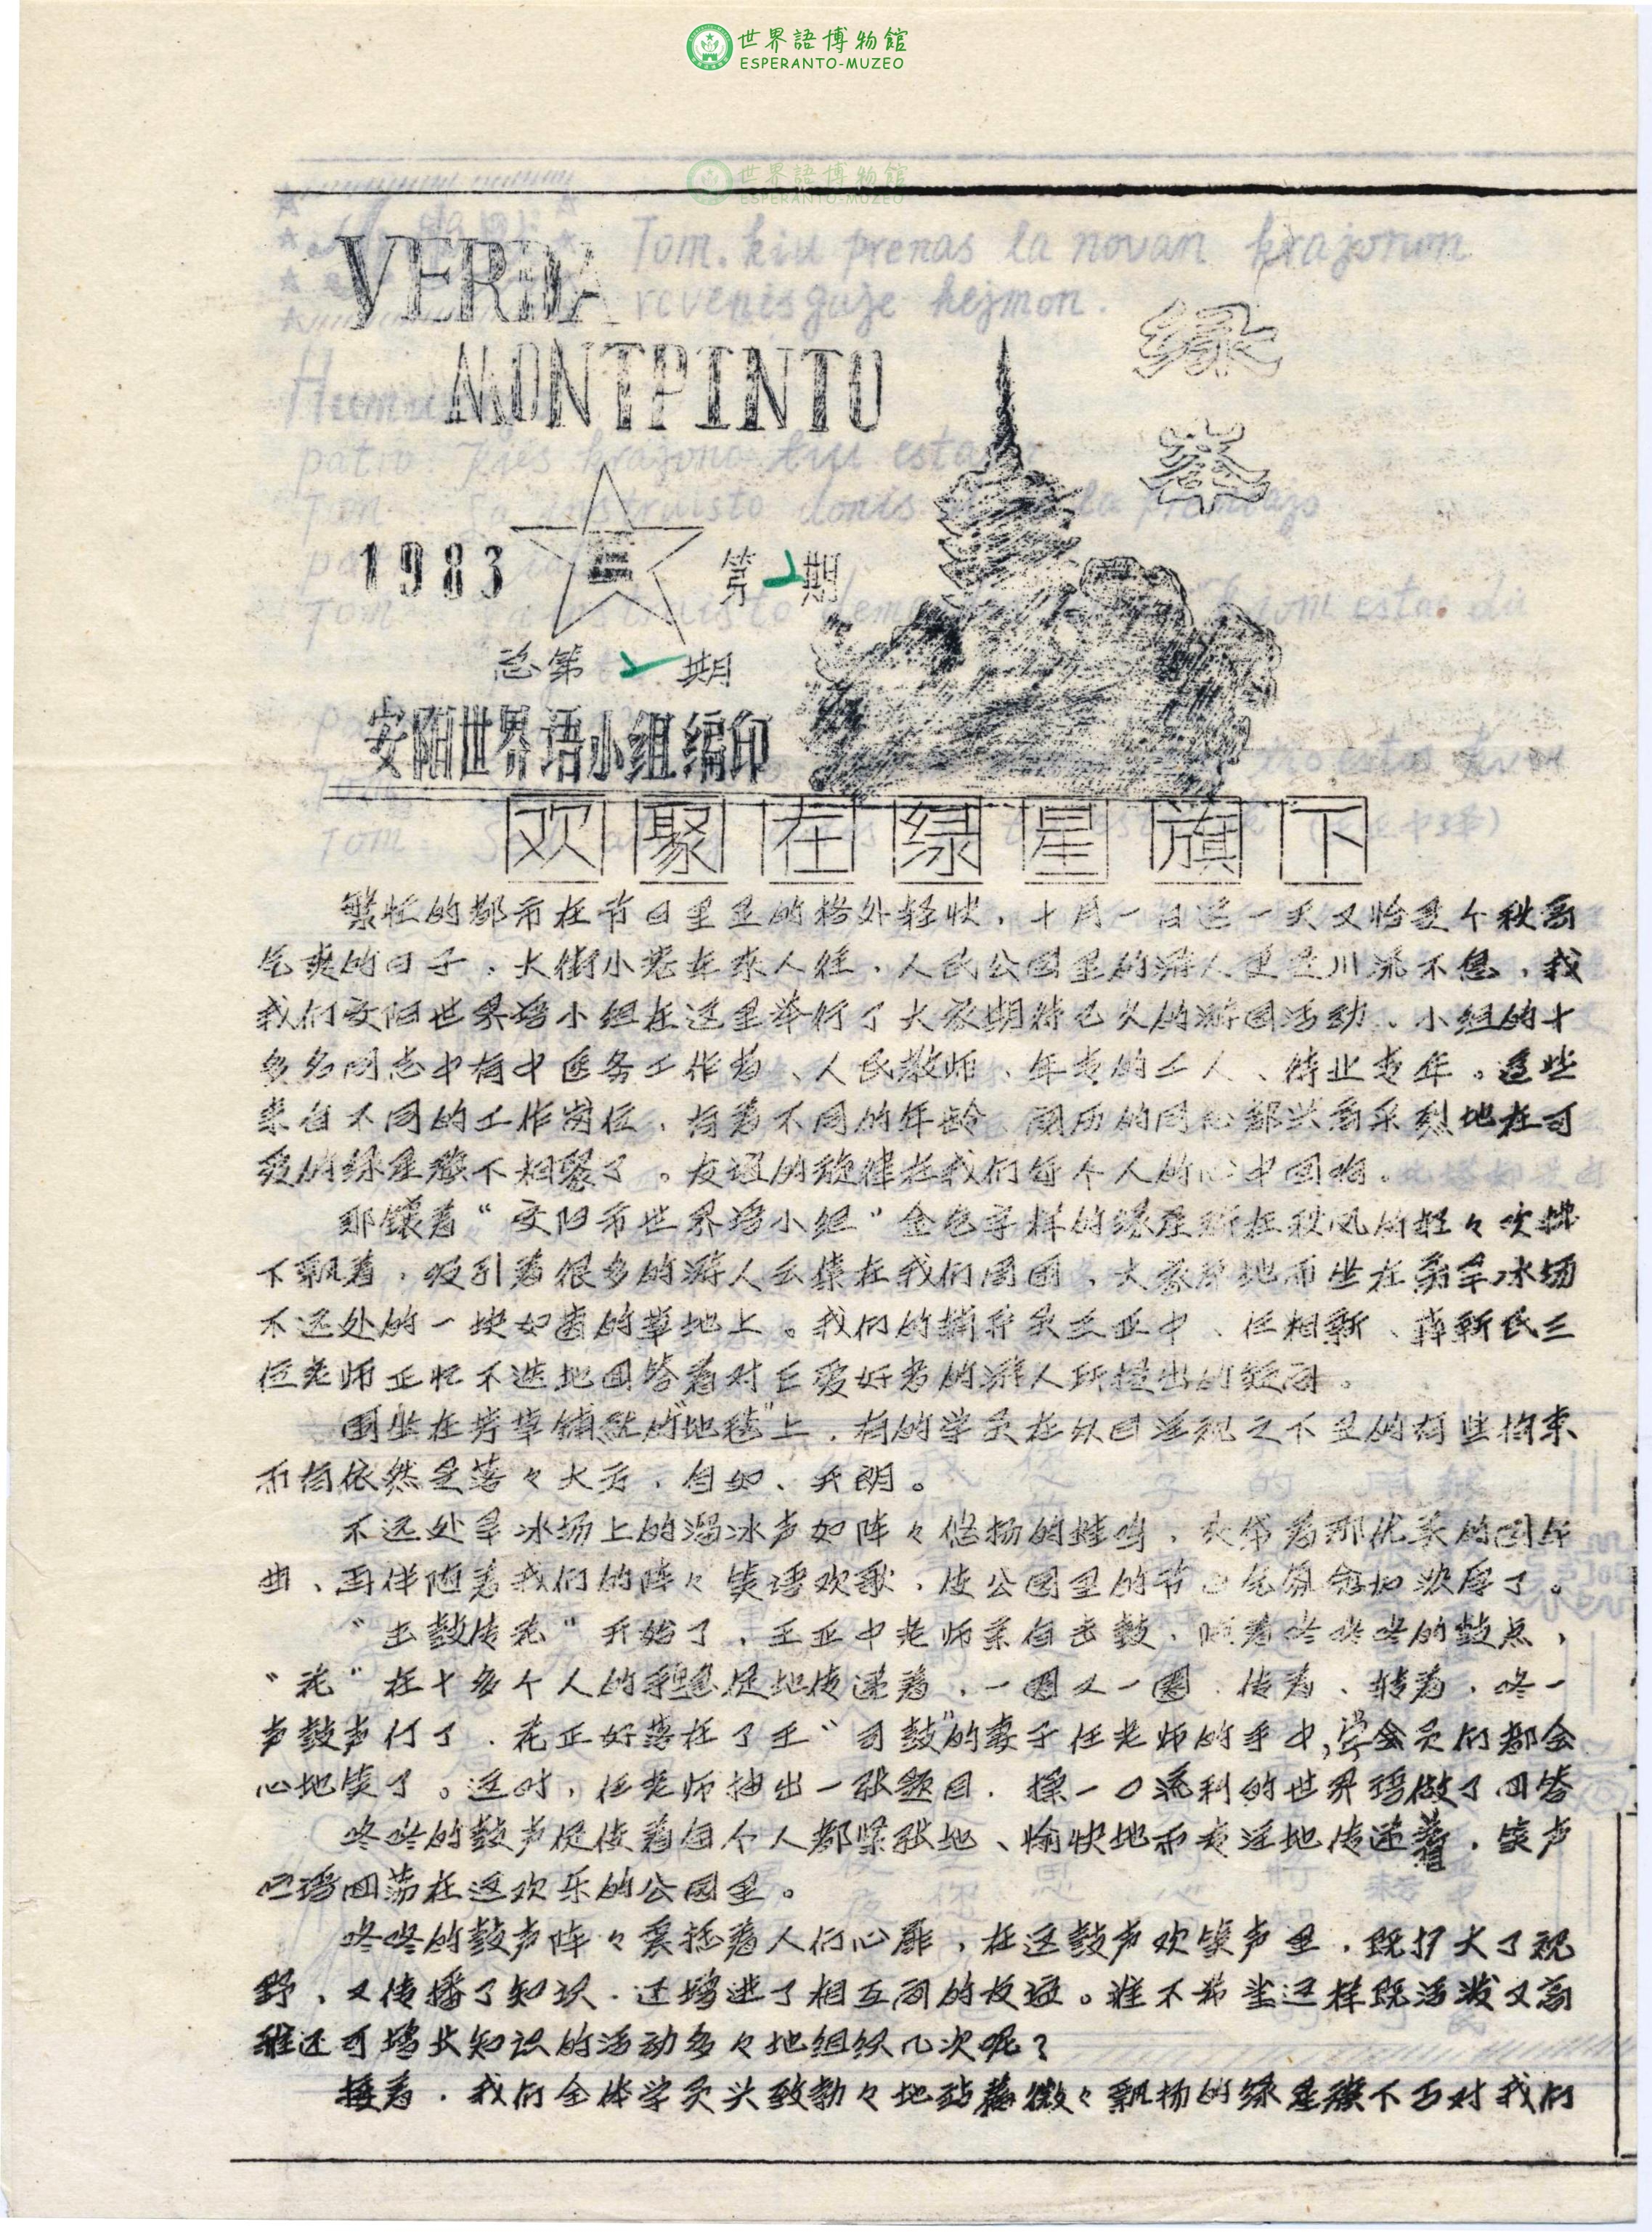 世界語博物館
ESPERANTO-MUZEO
世界語博物館
ESPERANTO-MUZEO
VERDA
MONTPINTO
绿
峰
1983
第2期
总第2期
安阳世界语小组编印
欢聚在绿星旗下
繁忙的都市在节日里显的格外轻快，十月一日这一天又恰是个秋高
气爽的日子，大街小巷车来人往，人民公园里的游人更是川流不息，我
我们安阳世界语小组在这里举行了大家期待已久的游园活动、小组的十
多名同志中有中医务工作者、人民教师、年青的工人、待业青年。这些
来自不同的工作岗位、有着不同的年龄、阅历的同志都兴高采烈地在可
爱的绿星旗下相聚了。友谊的旋律在我们每个人的心中回响。
那镶着“安阳市世界语小组”金色字样的绿星旗在秋风的轻々吹拂
下飘着，吸引着很多的游人云集在我们周围，大家席地而坐在旱冰场
不远处的一块如茵的草地上。我们的辅导员王正中、任相新、薛新民三
位老师正忙不迭地回答着对世爱好者的游人所提出的疑问。
围坐在芳草铺就的“地毯”上，有的学员在众目注视之下显的有些拘束
而有依然是落々大方、自如、开朗。
不远处旱冰场上的溜冰声如阵々悠扬的蛙鸣，夹带着那优美的圆舞
曲、再伴随着我们的阵々笑语欢歌，使公园里的节日气氛愈加浓厚了。
“击鼓传花”开始了，王正中老师亲自击鼓，随着咚咚咚的鼓点，
“花”在十多个人的手里急促地传递着，一圈又一圈、传着、转着，咚一
声鼓声停了、花正好落在了王“司鼓”的妻子任老师的手中，学员们都会
心地笑了。这时，任老师抽出一张题目、操一口流利的世界语做了回答
咚咚的鼓声促使着每个人都紧张地、愉快地而专注地传递着，笑声
世语回荡在这欢乐的公园里。
咚咚的鼓声阵々震撼着人们心扉，在这鼓声欢笑声里，既扩大了视
野、又传播了知识、还增进了相互间的友谊。谁不希望这样既活泼又高
雅还可增长知识的活动多々地组织几次呢？
接着，我们全体学员头致勃々地站着微々飘扬的绿星旗下面对我们